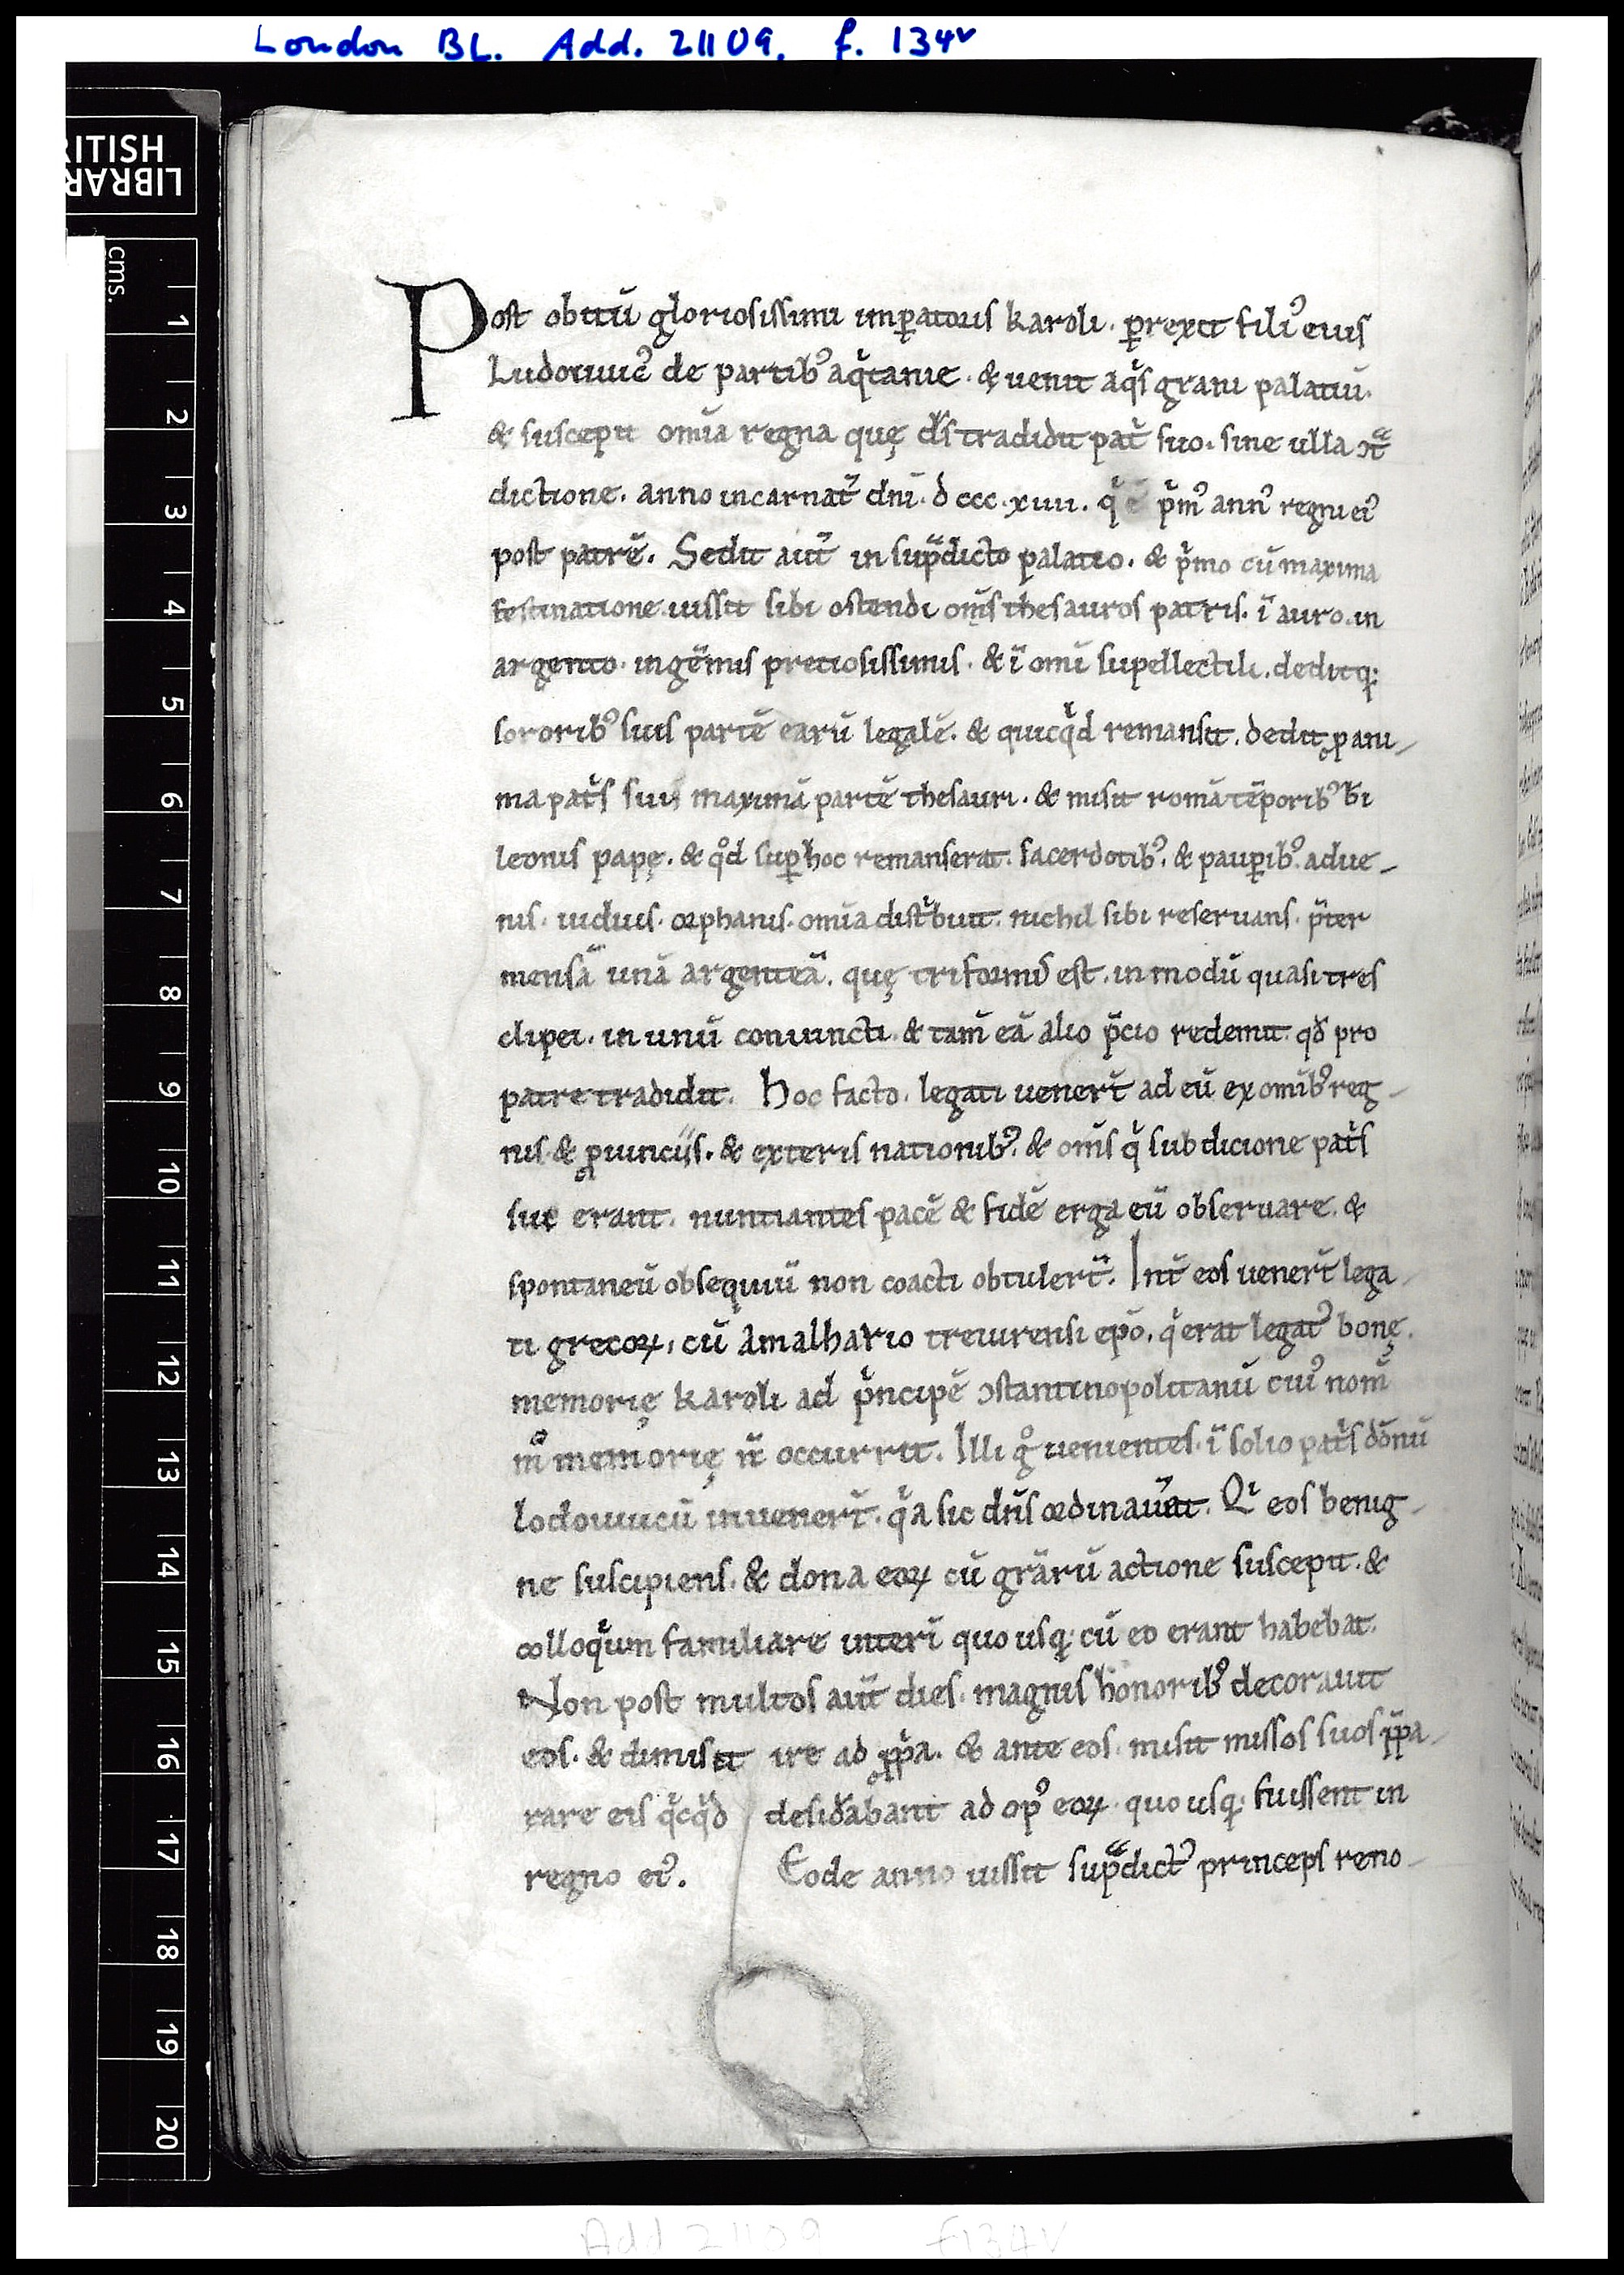 London BL. Add. 21109. f. 134v
BRITISH
LIBRARY
cms.
1
2
3
4
5
6
7
8
9
10
11
12
13
14
15
16
17
18
19
20
Post obitū gloriosissimi imꝑatoris karoli. ꝑrexit filiꝰ eius
Ludouuicꝰ de partibꝰ aqͥtanie. & uenit aqͥs grani palatiū.
& suscepit om̄ia regna quę d̄s tradidit patͥ suo. sine ulla ↄtͣ
dictione. anno incarnat̄ dn̄i. dccc.xiiii. qͥ ē pͥmꝰ annꝰ regni eiꝰ
post patrē. Sedit aut̄ in supͣdicto palatio. & pͥmo cū maxima
festinatione iussit sibi ostendi om̄s thesauros patris. ī auro. in
argento. in gēmis preciosissimis. & ī om̄i supellectili. deditq;
sororibꝰ suis partē earū legalē. & quicqͥd remansit. dedit ꝓ ani-
ma patͥs sui maximā partē thesauri. & misit romā tēporibꝰ b̄i
leonis papę. & qͦd suꝑ hoc remanserat. sacerdotibꝰ. & pauꝑibꝰ. adue-
nis. uiduis. orphanis. om̄ia distͥbuit. nichil sibi reseruans. p̄ter
mensā unā argenteā. quę triformis est. in modū quasi tres
clipei. in unū coniuncti. & tam̄ eā alio p̄cio redemit. qd̄ pro
patre tradidit. Hoc facto. legati uenert̄ ad eū ex om̄ibꝰ reg-
nis. & ꝓuinciis. & exteris nationibꝰ. & om̄s qͥ sub dicione patͥs
sui erant. nuntiantes pacē & fidē erga eū obseruare. &
spontaneū obsequiū non coacti obtulert̄. Int̄ eos uenert̄ lega-
ti grecoꝝ. cū Amalhario treuirensi ep̄o. qͥ erat legatꝰ bonę
memorię karoli ad pͥncipē ↄstantinopolitanū cuiꝰ nom̄
m̄ memorię n̄ occurrit. Illi gͦ uenientes. ī solio patͥs dōnū
lodouuicū inuenert̄. qͥa sic dn̄s ordinauāt. Qͥ eos benig-
ne suscipiens. & dona eoꝝ cū gr̄arū actione suscepit. &
colloqͥum familiare interī quo usq; cū eo erant habebat.
Non post multos aut̄ dies. magnis honoribꝰ decorauit
eos. & dimisit ire ad ꝓpͥa. & ante eos misit missos suos p̄pa-
rare eis qͥcqͥd desid̄abant ad opꝰ eoꝝ. quo usq; fuissent in
regno eiꝰ. Eode anno iussit supͣdictꝰ princeps reno-
Add 21109 f134v